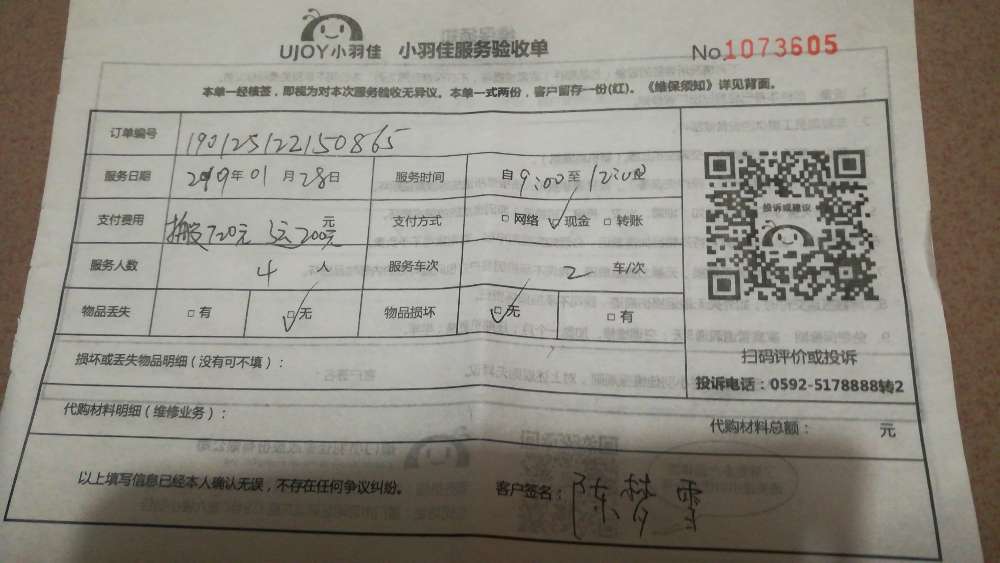 UJOY小羽佳 小羽佳服务验收单 No.1073605
本单一经核签，即视为对本次服务验收无异议。本单一式两份，客户留存一份(红)。《维保须知》详见背面。
订单编号 190125122150865
服务日期 2019年01月28日 服务时间 自9:00至12:00
支付费用 搬720元 运200元 元 支付方式 □网络 ☑现金 □转账
服务人数 4人 服务车次 2车/次
物品丢失 □有 ☑无 物品损坏 ☑无 □有
投诉或建议
扫码评价或投诉
损坏或丢失物品明细（没有可不填）：
投诉电话：0592-5178888转2
代购材料明细（维修业务）：
代购材料总额： 元
以上填写信息已经本人确认无误，不存在任何争议纠纷。 客户签名：陈梦雪